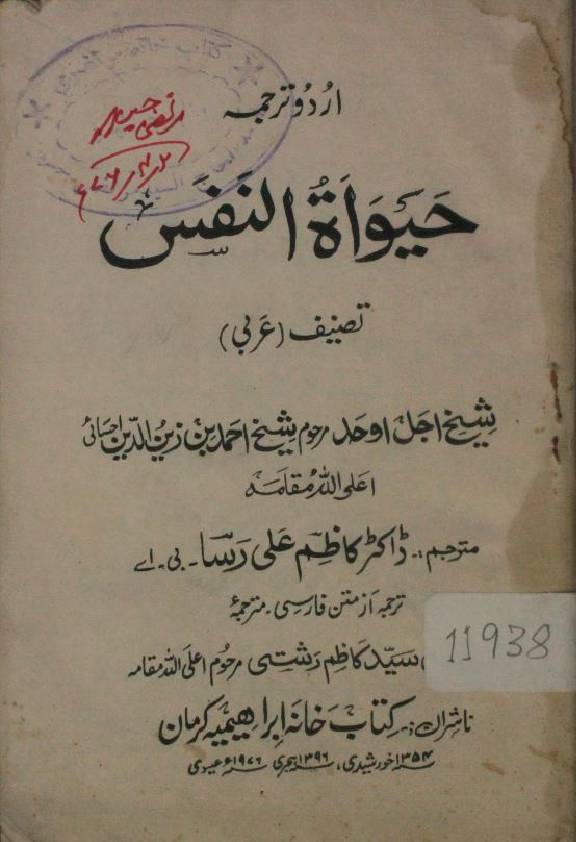 اردو ترجمہ
حَیَوَاۃُ النَفَس
تصنیف (عربی)
شیخ اجل اوحد مرحوم شیخ احمد بن زین الدین احسائی
اعلی اللہ مقامہ
مترجم :۔ ڈاکٹر کاظم علی رسا ۔ بی ۔ اے
ترجمہ از متن فارسی ۔ مترجمۂ
سیّد کاظم رشتی مرحوم اعلی اللہ مقامہ
11938
ناشران :۔ کتاب خانۂ ابراھیمیہ کرمان
۱۳۵۴ خورشیدی، ۱۳۹۶ ہجری ۱۹۷۶ء عیسوی